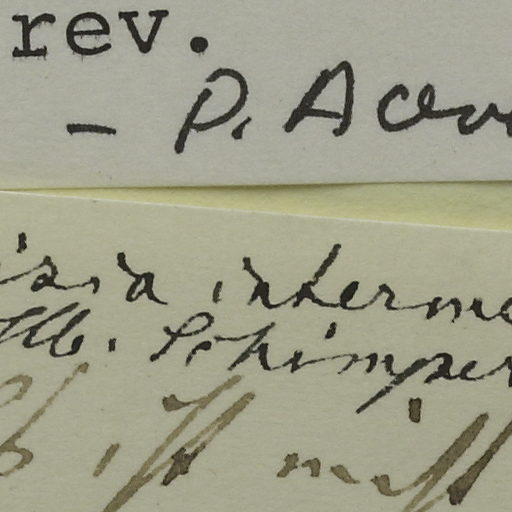 rev.
- P. Acev
isia interme
Hb. Schimper